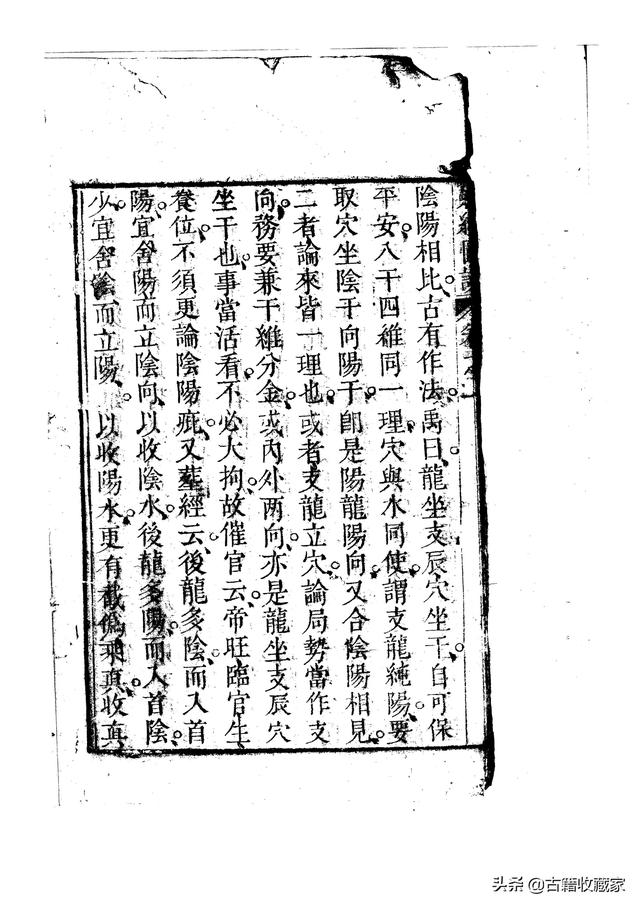 陰陽相比古有作法禹曰龍坐支辰穴坐干自可保
平安八干四維同一理穴與水同使謂支龍純陽要
取穴坐陰干向陽干即是陽龍陽向又合陰陽相見
二者論來皆一理也或者支龍立穴論局勢當作支
向務要兼干維分金或內外两向亦是龍坐支辰穴
坐干也事當活看不必大拘故催官云帝旺臨官生
養位不須更論陰陽疵又墓經云後龍多陰而入首
陽宜舍陽而立陰向以收陰水後龍多陽而入首陰
少宜舍陰而立陽以收陽水更有截僞乘真收真
头条 @古籍收藏家